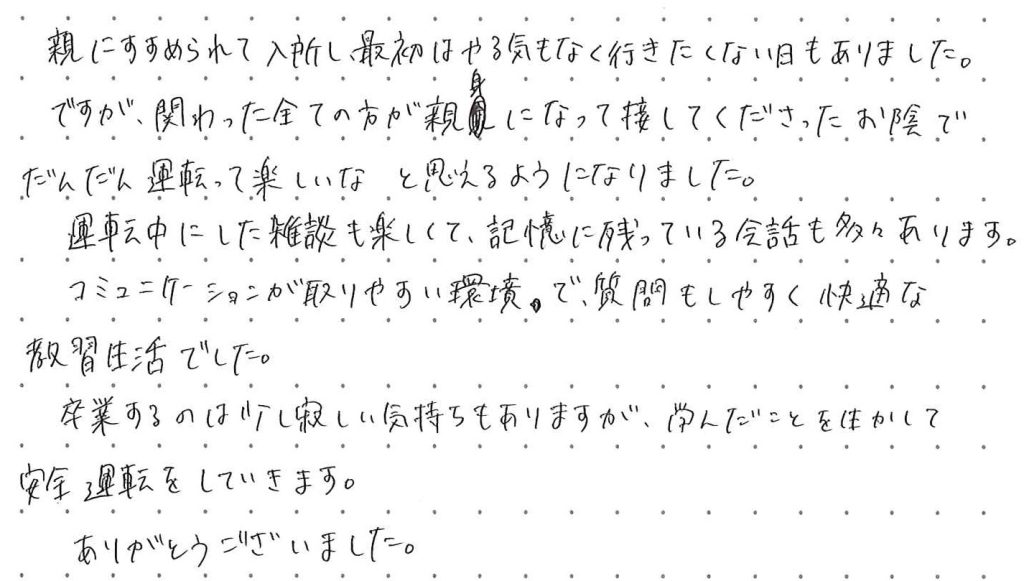 親にすすめられて入所し最初はやる気もなく行きたくない日もありました。
ですが、関わった全ての方が親身になって接してくださったお陰で
だんだん運転って楽しいな と思えるようになりました。
運転中にした雑談も楽しくて、記憶に残っている会話も多々あります。
コミュニケーションが取りやすい環境で、質問もしやすく快適な
教習生活でした。
卒業するのは少し寂しい気持ちもありますが、学んだことを生かして
安全運転をしていきます。
ありがとうございました。